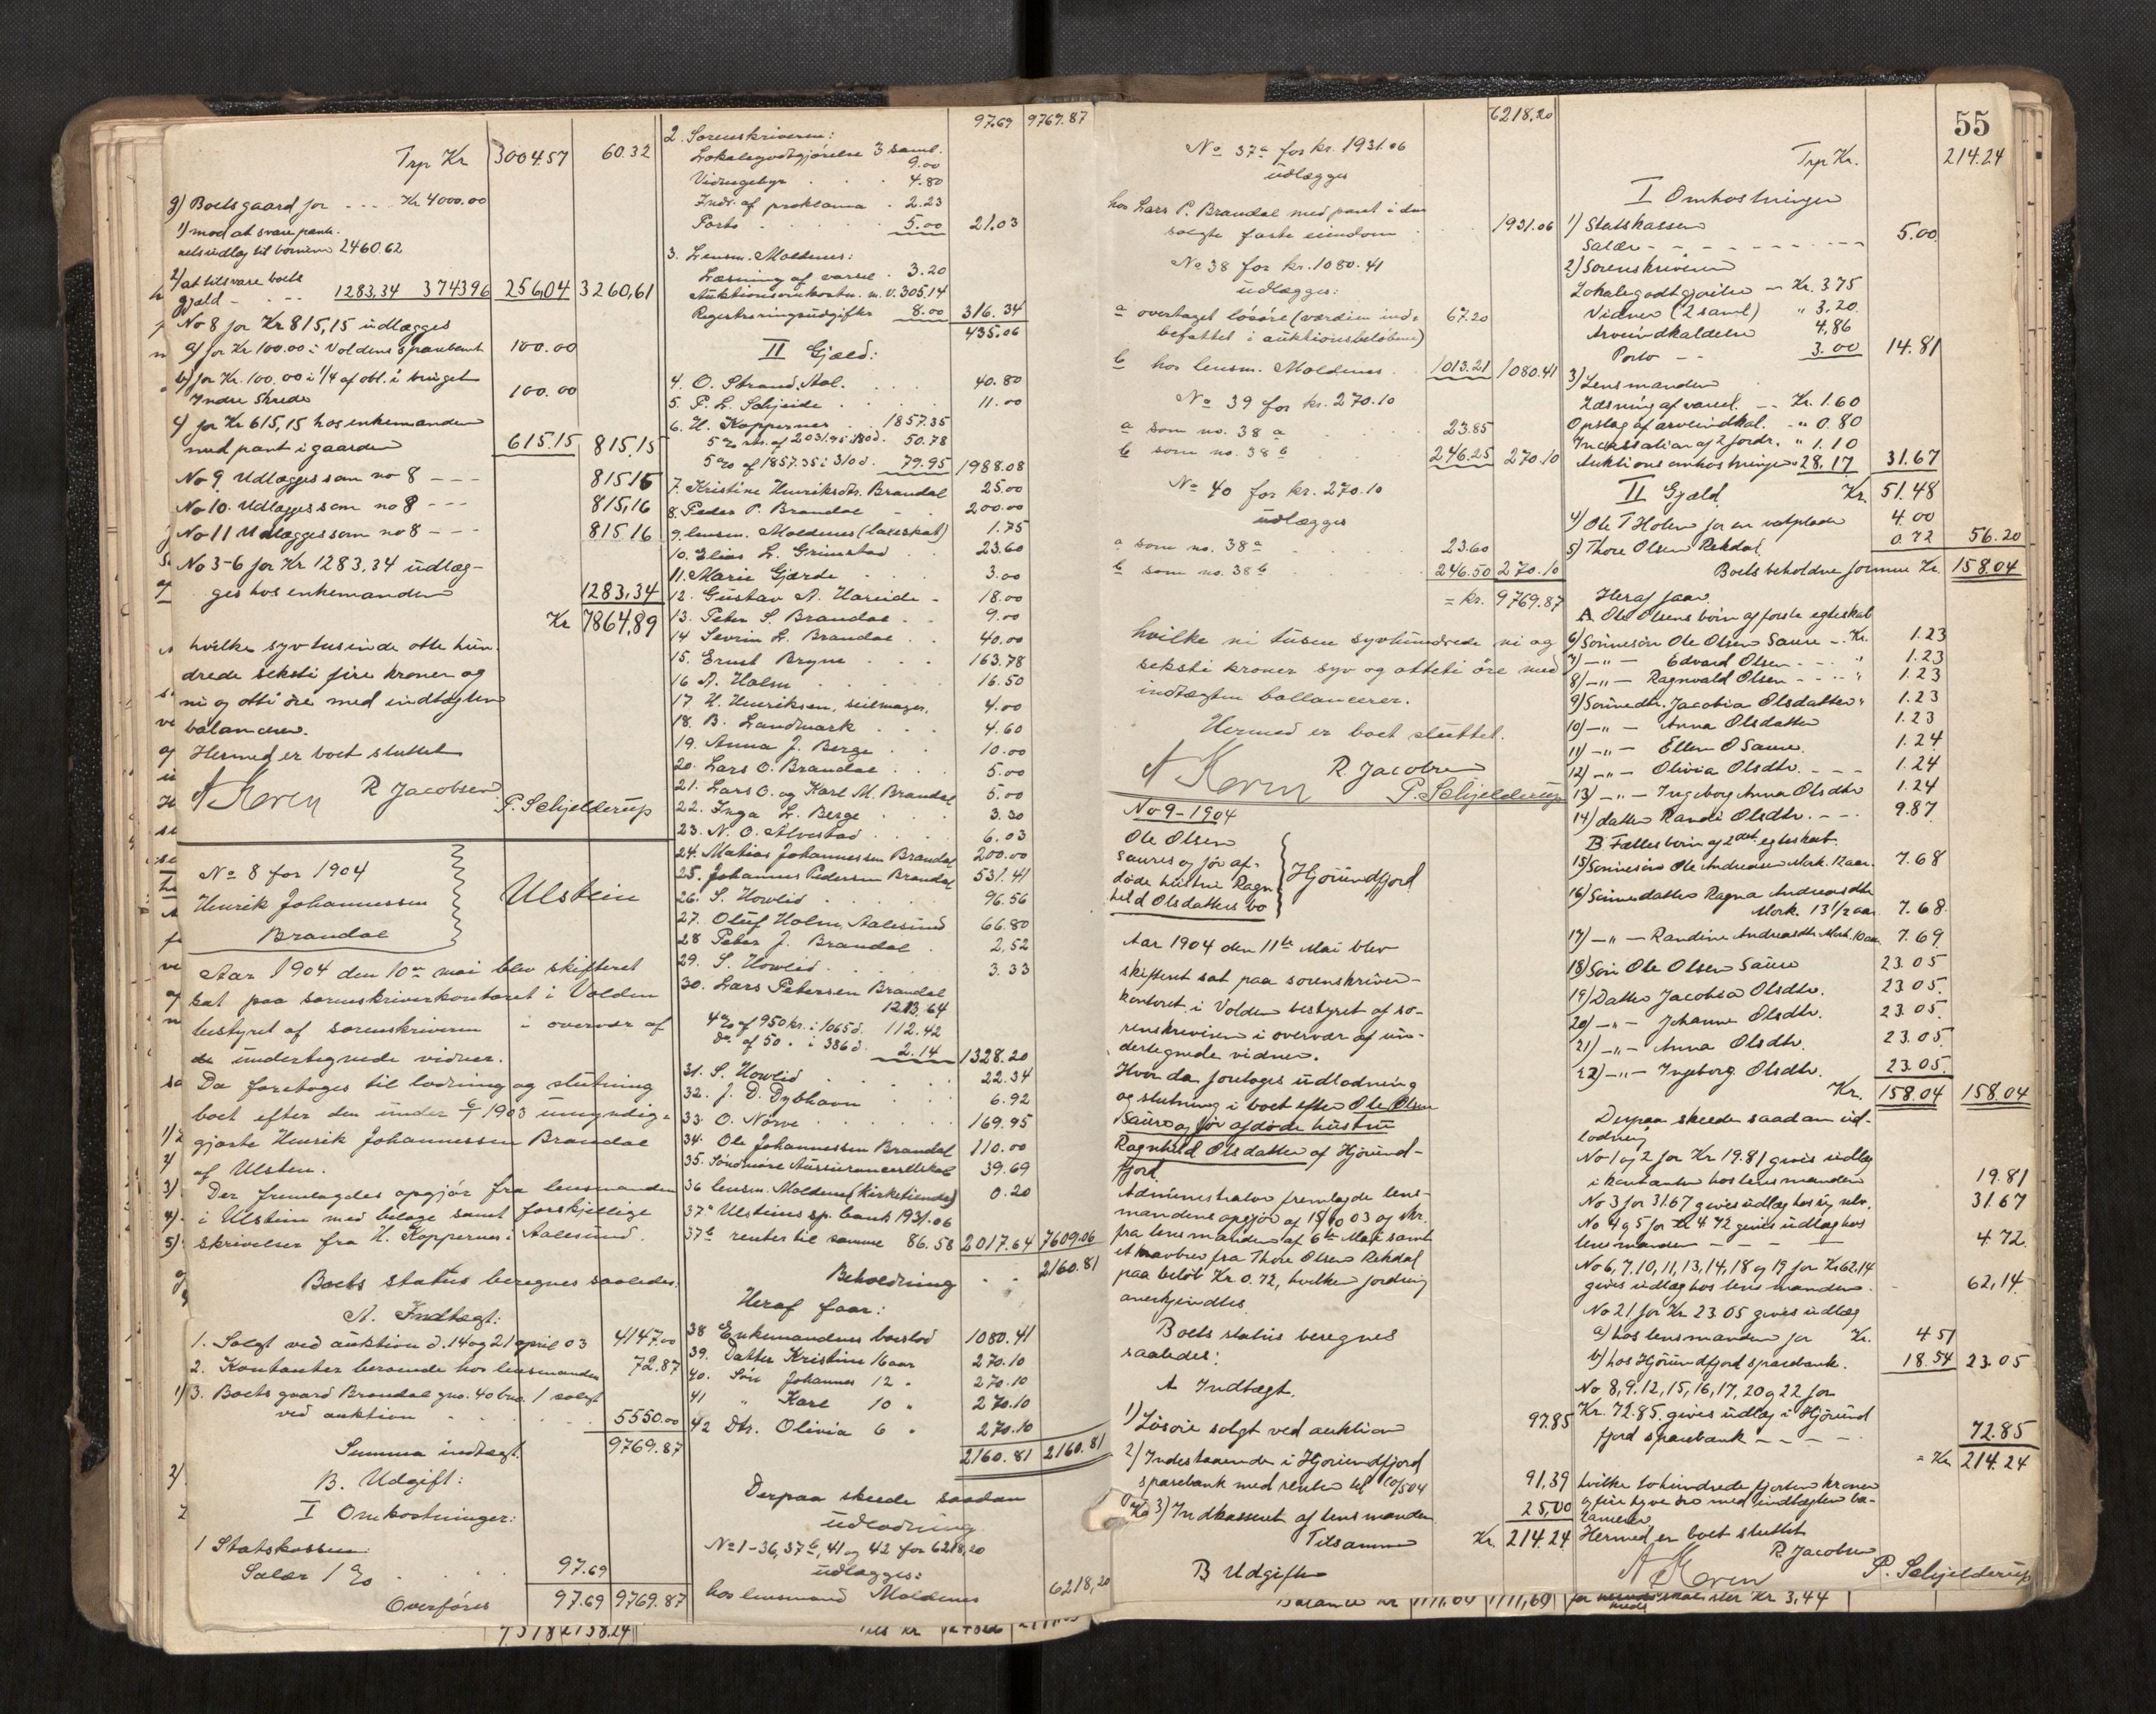 Trp Kr 3004.57 60.32
g) Boetsgaard for - - - Kr 4000.00
1) mod at svare pante-
retsudlæg til börnene 2460.62
2) at tilsvare boets
gjæld - - - 1283,34 3743 96 256,04 3260,61
No 8 for Kr 815,15 udlægges
a) for Kr 100.00 i Voldens sparebank 100.00
b) for Kr. 100,00 i 1/4 af obl. i bruget
Indre Skrede 100.00
c) for Kr 615,15 hos enkemanden
med pant i gaarden 615.15 815,15
No 9 Udlægges som no 8 - - - 815.15
No 10. Udlægges som no 8 - - - 815,16
No 11 Udlægges som no 8 - - - 815 16
No 3-6 for Kr 1283.34 udlæg-
ges hos enkemanden 1283,34
Kr 7864,89
hvilke syv tusinde otte hun-
drede seksti fire kroner og
ni og otti öre med indtægten
balancerer.
Hermed er boet sluttet
A Koren R Jacobsen P. Schjelderup
No 8 for 1904
Henrik Johannessen
Brandal
Ulstein
Aar 1904 den 10de mai blev skifteret
sat paa sorenskriverkontoret i Volden
bestyret af sorenskriveren i overvær af
de undertegnede vidner.
Da foretoges til lodning og slutning
boet efter den under 6/1 1903 umyndig-
gjorte Henrik Johannessen Brandal
af Ulsten.
Der fremlagdes opgjör fra lensmanden
i Ulstein med belage samt forskjellige
skrivelser fra H. Koppernes i Aalesund.
Boets status beregnes saaledes:
A. Indtægt:
1. Solgt ved auktion d. 14 og 21 april 03 4147.00
2. Kontanter beroende hos lensmanden 72.87
3. Boets gaard Brandal gno. 40 bno. 1 solgt
ved auktion 5550.00
Summa indtægt. 9769.87
B. Udgift:
I Omkostninger:
1 Statskassen:
Salær 1 % 97.69
Overföres 97.69 9769.87
97.69 9769.87
2. Sorenskriveren:
Lokalegodtgjörelse 3 saml. 9.00
Vidnegebyr 4.80
Indr. af proklama 2.23
Porto 5.00 21.03
3. Lensm. Moldenes:
Læsning af varsel 3.20
Auktionsomkostn. m. v. 305.14
Registreringsudgifter 8.00 316.34
435.06
II Gjæld:
4. O. Strand, Aal. 40.80
5. P. L. Schjeide 11.00
6. H. Koppernes 1857.35
5 % rnt. af 2031.95 180 d. 50.78
5 % af 1857.35 i 310 d. 79.95 1988.08
7. Kristine Henriksdtr. Brandal 25.00
8. Peder P. Brandal 200.00
9. lensm. Moldenes (lægeskat) 1.75
10. Elias L. Grimstad 23.60
11. Marie Gjærde 3.00
12. Gustav A. Hareide 18.00
13. Peter S. Brandal 9.00
14 Sevrin L. Brandal 40.00
15. Ernst Bryne 163.78
16 A. Holm 16.50
17 H. Henriksen, seilmager, 4.00
18. B. Landmark 4.60
19. Anna J. Berge 10.00
20. Lars O. Brandal 5.00
21. Lars O. og Karl M. Brandal 5.00
22. Inga L. Berge 3.30
23. N. O. Alvestad 6.03
24. Matias Johannessen Brandal 200.00
25. Johannes Pedersen Brandal 531.41
26. S. Howlid 96.56
27. Oluf Holm, Aalesund 66.80
28 Peter J. Brandal 2,52
29. S. Howlid 3.33
30. Lars Petersen Brandal
1213.64
4 % af 950 kr. i 1065 d. 112.42
do af 50 - i 386 d. 2.14 1328.20
31. S. Howlid 22.34
32. J. D. Dybhavn 6.92
33 O. Nörve 169.95
34. Ole Johannessen Brandal 110.00
35. Söndmöre Assuranceselskab 39.69
36 lensm. Moldenes (Kirketiende) 0.20
37a Ulsteins sp. bank 1931.06
37b renter til samme 86.58 2017.64 7609.06
Beholdning 2160.81
Heraf faar:
38 Enkemandens boeslod 1080.41
39. Datter Kristine 16 aar 270.10
40. Sön Johannes 12 " 270.10
41 " Karl 10 " 270.10
42 dtr. Olivia 6 " 270.10
2160.81 2160.81
Derpaa skede saadan
udlodning
No 1-36, 37b, 41 og 42 for 6218,20
udlægges:
hos lensmand Moldenes 6218,20
6218,20
No 37a for kr. 1931.06
udlægges
hos Lars P. Brandal med pant i den
solgte faste eiendom 1931.06
No 38 for kr. 1080.41
udlægges:
a overtaget lösöre (værdien ind-
befattet i auktionsbelöbene) 67.20
b hos lensm. Moldenes 1013.21 1080.41
No 39 for kr. 270.10
a som no. 38 a 23.85
b som no. 38 b 246.25 270.10
No 40 for kr. 270.10
udlægges
a som no. 38 a 23.60
b som no. 38 b 246.50 270.10
= kr. 9769.87
hvilke ni tusen syvhundrede ni og
seksti kroner syv og otteti öre med
indtægten ballancerer.
Hermed er boet sluttet.
A Koren R. Jacobsen P. Schjelderup
No 9 - 1904
Ole Olsen
Saures og för af-
döde hustru Ragn
hild Olsdatters bo
Hjörundfjord
Aar 1904 den 11te Mai blev
skifteret sat paa sorenskriver-
kontoret i Volden bestyret af so-
renskriveren i overvær af un-
dertegnede vidner.
Hvor da foretoges udlodning
og slutning i boet efter Ole Olsen
Saure og för afdöde hustru
Ragnhild Olsdatter af Hjörund-
fjord.
Administrator fremlagde lens-
mandens opgjör af 15/10 03 og skr.
fra lensmanden af 6te Mai samt
et kravbrev fra Thore Olsen Rekdal
paa belöb Kr 0.72, hvilken fordring
anerkjendtes.
Boets status beregnes
saaledes:
A Indtægt.
1) Lösöre solgt ved auktion 97.85
2) Indestaaende i Hjörundfjord
sparebank med renter til 10/5 04 91,39
3) Indkasseret af lensmanden 25,00
Tilsammen Kr. 214.24
B Udgifter
55
Trp Kr. 214.24
I Omkostninger
1) Statskassen
Salær - - - - - - 5.00
2) Sorenskriveren
Lokalegodtgjörelse - Kr. 3.75
Vidner (2 saml) " 3.20
Arveindkaldelse 4,86
Porto - - 3.00 14.81
3) Lensmanden
Læsning af varsel. - - Kr. 1.60
Opslag af arveindkal. - " 0.80
Incassation af 2 fordr. " 1.10
Auktionsomkostninger " 28,17 31.67
II Gjæld. Kr. 51.48
4) Ole T Holen for en vatplade 4.00
5) Thore Olsen Rekdal 0.72 56.20
Boets beholdne formue Kr. 158.04
Heraf faar
A Ole Olsens börn af förste egteskab
6) Sönnesön Ole Olsen Saure - Kr. 1.23
7) -"- Edvard Olsen - - - " 1.23
8) -"- Ragnvald Olsen - - - " 1.23
9) Sönnedtr. Jacobia Olsdatter " 1.23
10) -"- Anna Olsdatter 1.23
11) -"- Ellen O Saure. 1.24
12) -"- Olivia Olsdtr. - - - 1.24
13) -"- Ingeborg Anna Olsdtr 1.24
14) datter Randi Olsdtr. - - - 9.87
B Fælles börn af 2det egteskab.
15) Sönnesön Ole Andreasen Mork. 12 aar. 7.68
16) Sönnedatter Ragna Andreasdtr
Mork. 13 1/2 aar 7.68
17) -"- Randine Andreasdtr Mork. 10 aar 7.69
18) Sön Ole Olsen Saure 23.05
19) Datter Jacobia Olsdtr. 23.05.
20) -"- Johanne Olsdtr. 23.05.
21) -"- Anna Olsdtr. 23.05.
22) -"- Ingeborg Olsdtr. 23.05.
Kr. 158.04 158.04
Derpaa skeede saadan ud-
lodning
No 1 og 2 for Kr 19.81 gives udlæg
i kontanter hos lensmanden 19.81
No 3 for 31.67 gives udlæg hos sig selv. 31.67
No 4 og 5 for Kr 4 72 gives udlæg hos
lensmanden - - - - 4.72.
No 6, 7, 10, 11, 13, 14, 18 og 19 for Kr 62.14
gives udlæg hos lensmanden - 62,14.
No 21 for Kr 23.05 gives udlæg
a) hos lensmanden for Kr. 4 51
b) hos Hjörundfjord sparebank. 18.54 23.05
No 8, 9, 12, 15, 16, 17, 20 og 22 for
Kr. 72.85. gives udlæg i Hjörund
fjord sparebank - - - - 72.85
= Kr 214.24
hvilke tohundrede fjorten kroner
og fire tyve öre med indtægten ba-
lancerer
Hermed er boet sluttet
R Jacobsen
A Koren P. Schjelderup
Balance Kr 1111,60 1111,60
Kr 3,44